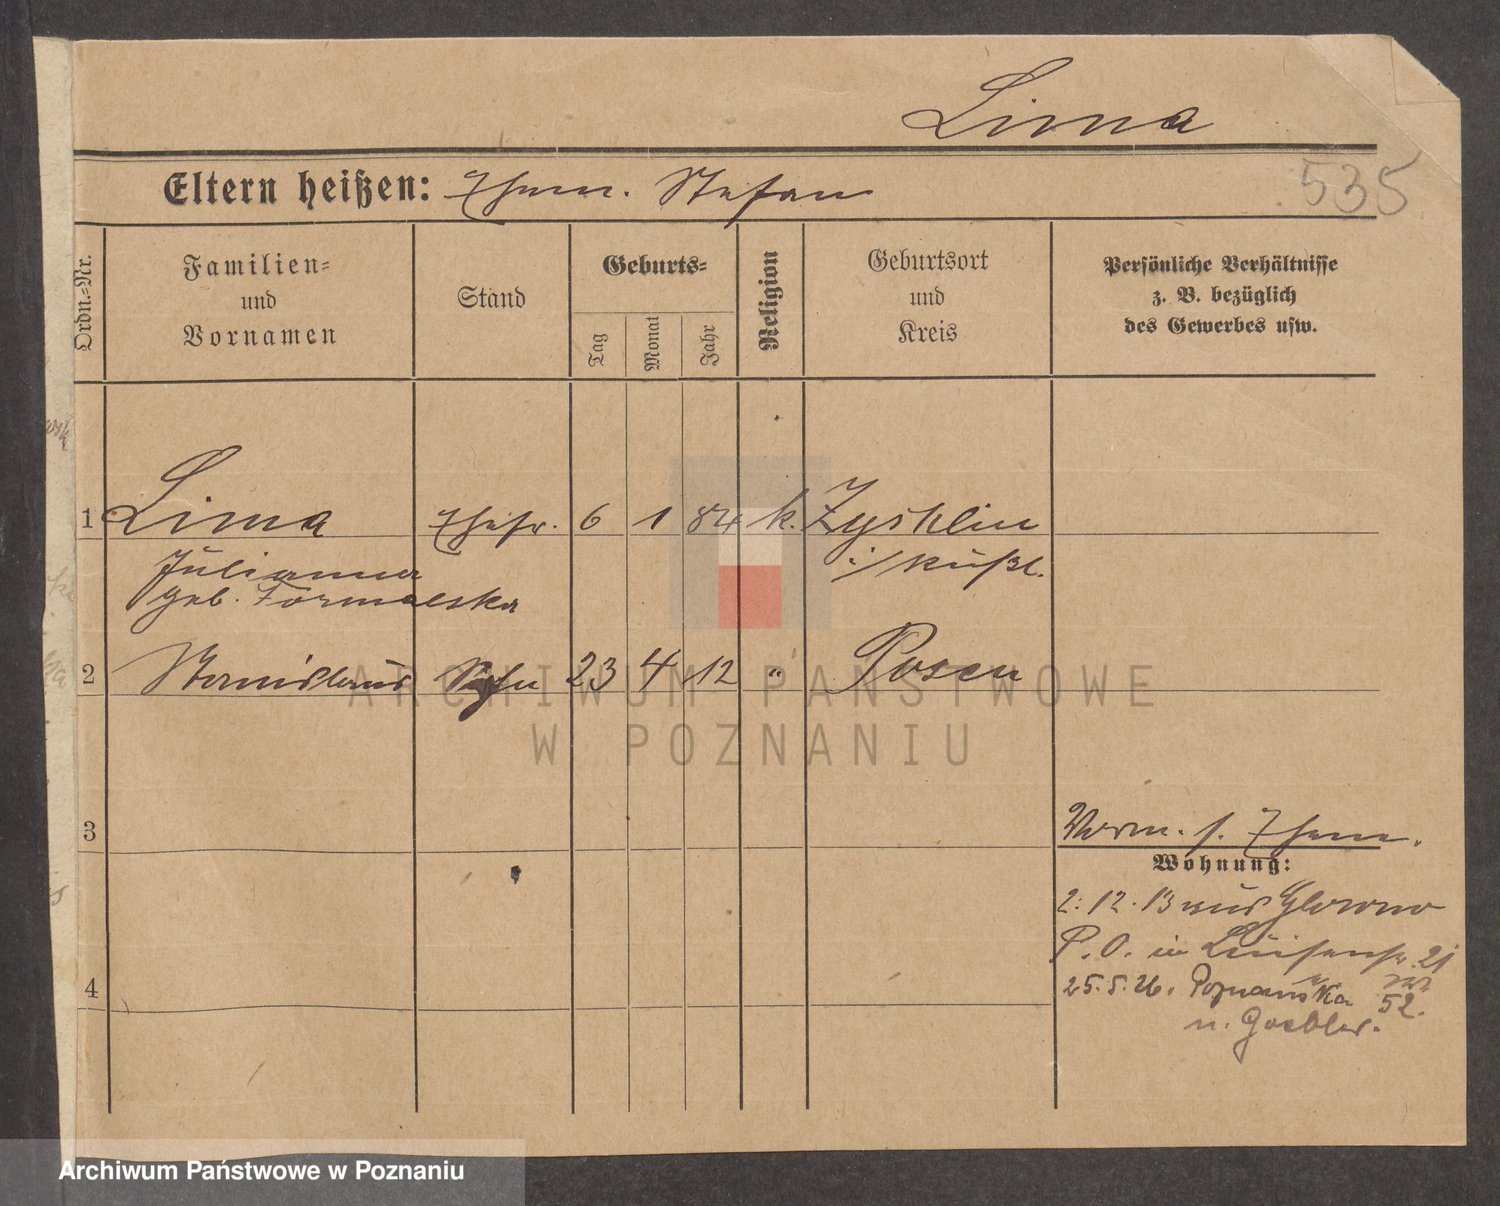 Lima
Eltern heißen: Ehem. Stefan
535
Ordn.-Nr.
Familien-
und
Vornamen
Stand
Geburts-
Tag
Monat
Jahr
Religion
Geburtsort
und
Kreis
Persönliche Verhältnisse
z. B. bezüglich
des Gewerbes usw.
1 Lima Ehefr. 6 1 84 k. Zychlin
Julianna
geb.
2 Stanislaus Sohn 23 4 12 " Posen
3
Verm. s. Ehem.
Wohnung:
2.12.13 aus Glowno
P. O. in Luisenstr. 21
4
25.5.26. Poznańska 52.
n.
ARCHIWUM PAŃSTWOWE
W POZNANIU
Archiwum Państwowe w Poznaniu